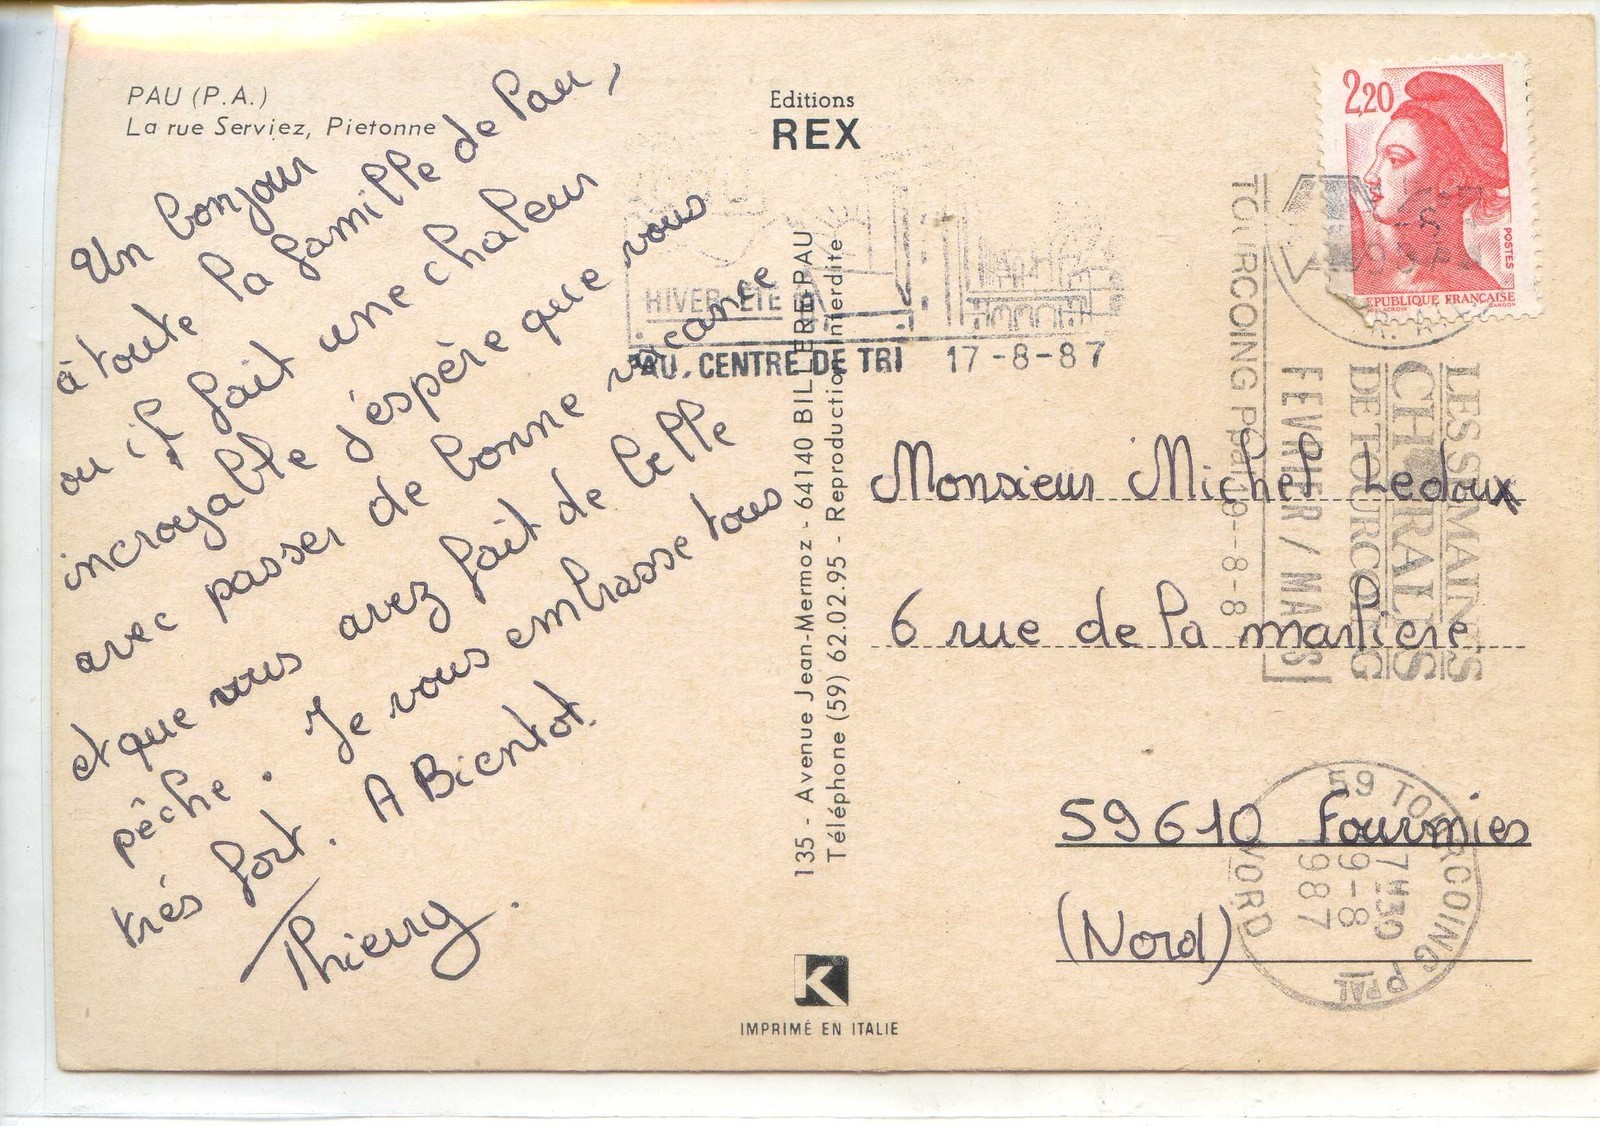 PAU (P.A.)
La rue Serviez, Pietonne
Un bonjour
à toute la famille de Pau,
ou il fait une chaleur
incroyable j'éspère que vous
avec passer de bonne vacance
et que vous avez fait de belle
pêche. Je vous embrasse tous
trés fort. A Bientot.
Thierry.
Editions
REX
HIVER-ÉTÉ
PAU. CENTRE DE TRI 17-8-87
135 - Avenue Jean-Mermoz - 64140 BILLERE-PAU
Téléphone (59) 62.02.95 - Reproduction interdite
IMPRIMÉ EN ITALIE
2,20
POSTES
REPUBLIQUE FRANÇAISE
LES SEMAINES
CHORALES
DE TOURCOING
FEVRIER / MARS
TOURCOING PPAL 19-8-8
Monsieur Michel Ledoux
6 rue de la marliere
59610 Fourmies
(Nord)
59 TOURCOING PPAL
7H30
9-8
987
NORD